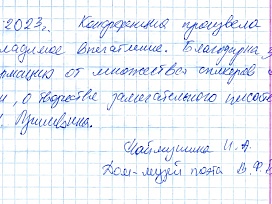 2023г. Конференция произвела
впечатление. Благодарна з
рмацию от множества спикеров
и, о творчестве замечательного писате
Пришвина.
Маймушина И. А.
Дом-музей поэта В. Ф.